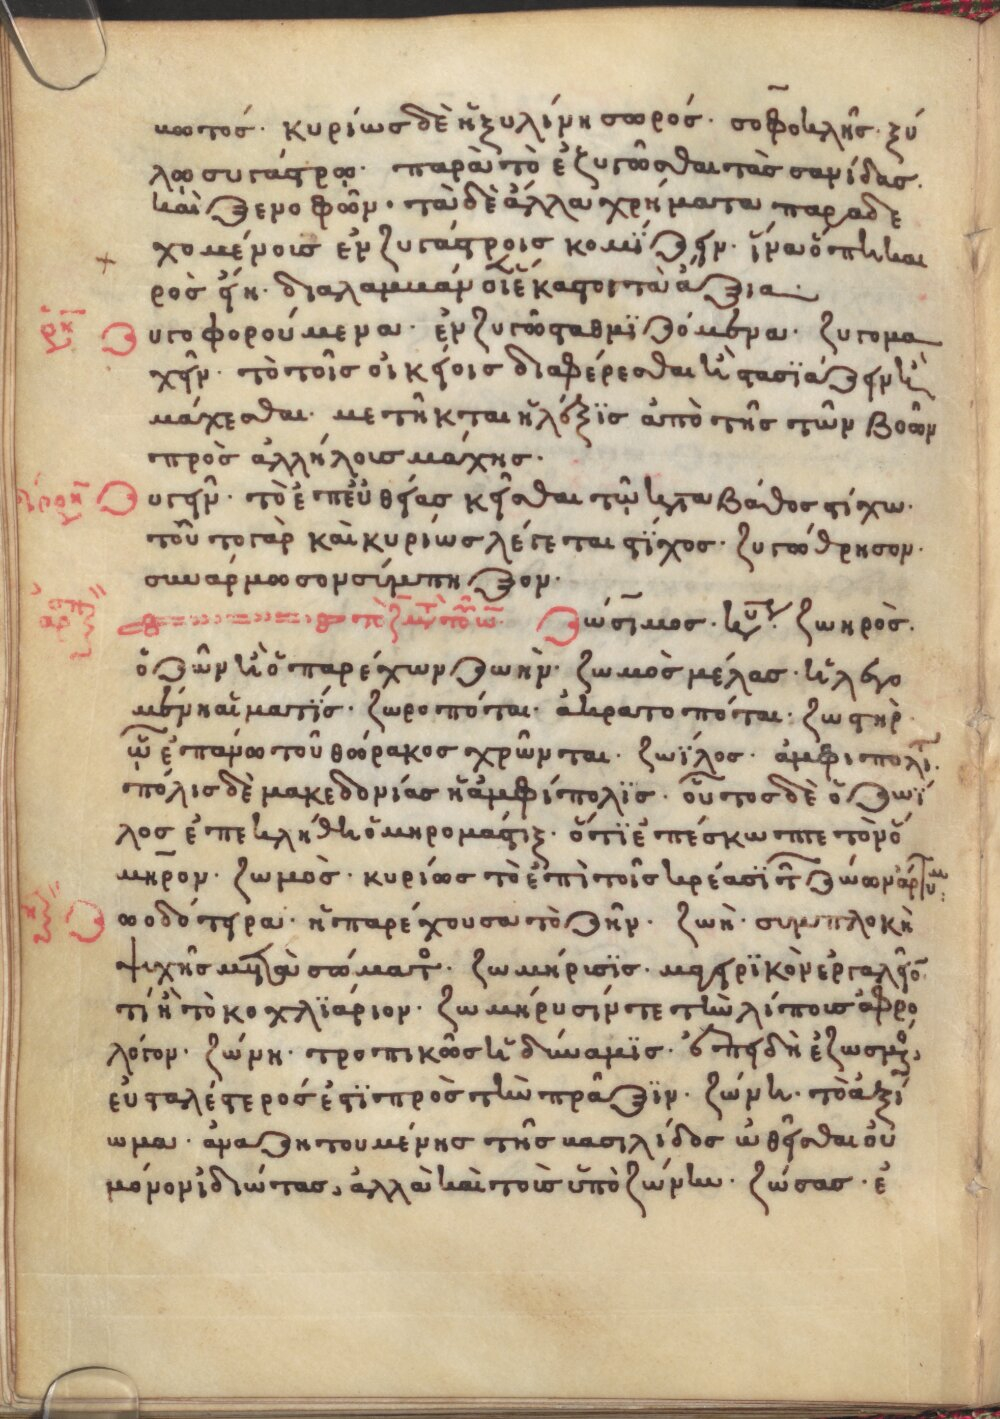 κιωτός. κυρίως δὲ ἡ ξυλίνη σωρός. σοφοκλῆς. ξύ
λω συγάςρω. παρὰ τὸ ἐζυγῶσθαι τὰς σανίδας.
καὶ ξενοφῶν. τὰ δὲ ἄλλα χρήματα παραδε
χομένοις ἐν ζυγάςροις κομίζειν. ἵνα ὅπη και
ρὸς εἴη. διαλαμμάν οἱ ἕκαςοι τὰ ἄξια.
ζυγοφορούμενα. ἐν ζυγῶ ςαθμϊζόμενα. ζυγομα
χεῖν. τὸ τοῖς οἰκείοις διαφέρεσθαι καὶ ςασϊάζειν καὶ
μάχεσθαι. μετῆκται ἡ λέξϊς ἀπὸ τῆς τῶν βοῶν
πρὸς ἀλλήλους μάχης.
ζυγεῖν. τὸ ἐπ' εὐθείας κεῖσθαι τῶ κατα βάθος ςίχω.
τοῦτο γὰρ καὶ κυρίως λέγεται ςίχος. ζυγώθρησον.
συνάρμωσον σύμπηξον.
ζώσιμος. κύριον. ζωηρὸς.
ὁ ζῶν καὶ ὁ παρέχων ζωὴν. ζωμὸς μέλας. ἡ λεγο
μένη αἱματϊς. ζωροπόται. ἀκρατοπόται. ζωςὴρ.
ᾧ ἐπάνω τοῦ θώρακος χρῶνται. ζωΐλος. ἀμφιπολί.
πόλις δὲ μακεδονίας ἡ ἀμφίπολϊς. οὗτος δὲ ὁ ζωΐ
λος ἐπεκλήθη ὁμηρομάςιξ. ὅτϊ ἐπέσκωπτε τὸν ὅ
μηρον. ζωμὸς. κυρίως τὸ ἐπὶ τοῖς κρέασϊ τ ζώων
ζωοδότειρα. ἡ παρέχουσα τὸ ζῆν. ζωὴ. συμπλοκὴ
ψυχῆς μετὰ σώματος. ζωμήρισϊς. μαγειρϊκὸν ἐργαλεῖον
τί ἢ τὸ κοχλϊάριον. ζωμήρυσίν τε τὴν λίποις ἀφρο
λόγον. ζώνη. τροπικῶς ἡ δύναμϊς. ἐπειδὴ ὁ ἐζωσμένος,
εὐςαλέςερός ἐςϊ πρὸς τὴν πρᾶξϊν. ζώνη. τὸ ἀξί
ωμα. ἀναζητουμένης τῆς βασιλίδος ὠθεῖσθαι οὐ
μόνον ἰδιώτας, ἀλλὰ καὶ τοὺς ὑπὸ ζώνην. ζώσας. ἐ